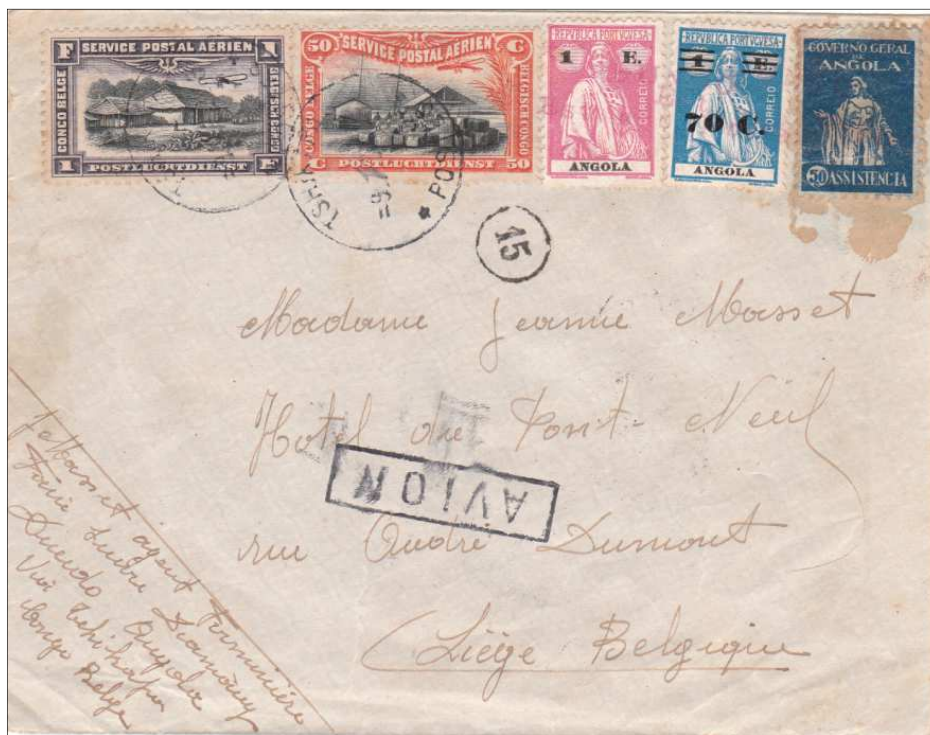 F SERVICE POSTAL AÉRIEN 1
CONGO BELGE
BELGISCH CONGO
1 POSTLUCHTDIENST F
50 SERVICE POSTAL AÉRIEN C
CONGO BELGE
BELGISCH CONGO
C POSTLUCHTDIENST 50
REPVBLICA PORTVGVESA
1 E.
CORREIO
ANGOLA
REPVBLICA PORTVGVESA
1 E.
70 C.
CORREIO
ANGOLA
GOVERNO GERAL
DE
ANGOLA
50 ASSISTENCIA
TSH
PO
15
Madame Jeanne Masset
Hotel du Pont Neuf
AVION
rue André Dumont
Liège Belgique
J Masset agent
Dundo Angola
Via
Congo Belge